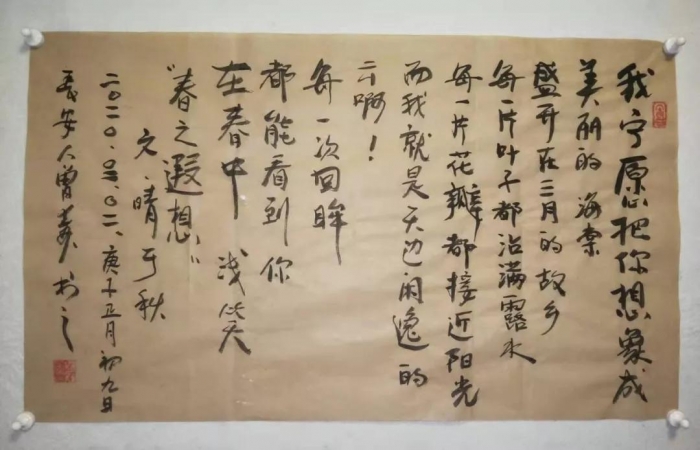 我宁愿把你想象成
美丽的海棠
盛开在三月的故乡
每一片叶子都沾满露水
每一片花瓣都接近阳光
而我就是天边闲逸的
云啊！
每一次回眸
都能看到你
在春中 浅笑
“春之遐想”
文：晴于秋
二〇二〇.〇二.〇二、庚子正月初九日
长安人曾